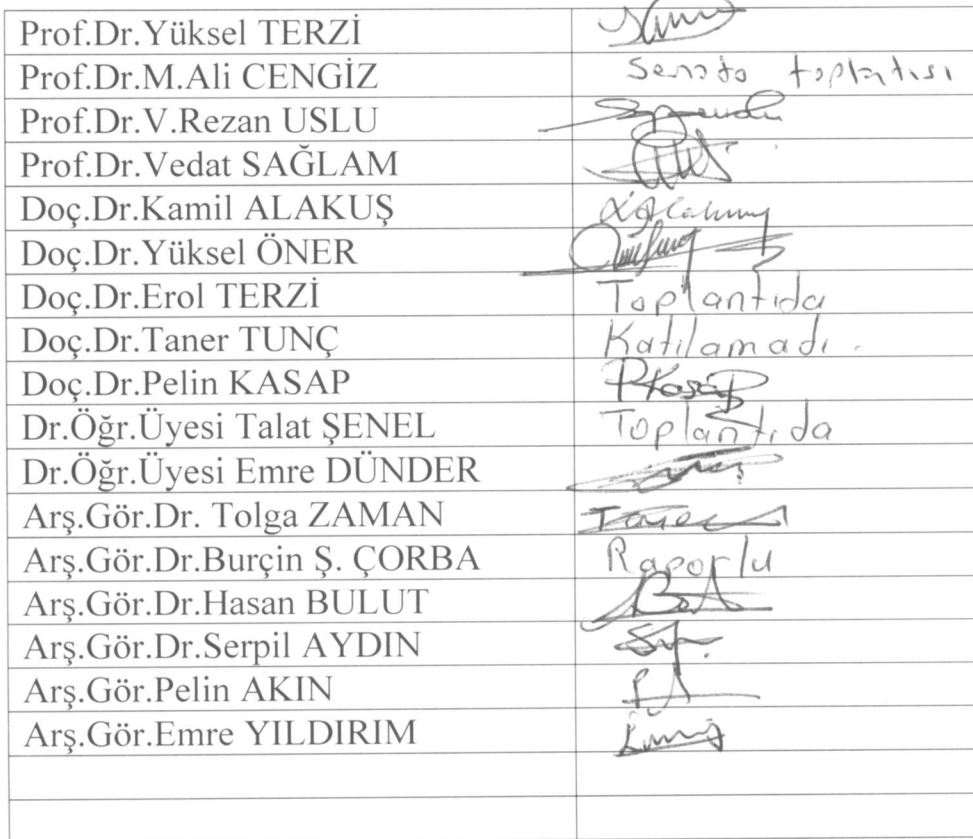 Prof.Dr.Yüksel TERZİ
Prof.Dr.M.Ali CENGİZ Senato toplantısı
Prof.Dr.V.Rezan USLU
Prof.Dr.Vedat SAĞLAM
Doç.Dr.Kamil ALAKUŞ
Doç.Dr.Yüksel ÖNER
Doç.Dr.Erol TERZİ Toplantıda
Doç.Dr.Taner TUNÇ Katılamadı.
Doç.Dr.Pelin KASAP PKasap
Dr.Öğr.Üyesi Talat ŞENEL Toplantıda
Dr.Öğr.Üyesi Emre DÜNDER
Arş.Gör.Dr. Tolga ZAMAN
Arş.Gör.Dr.Burçin Ş. ÇORBA Raporlu
Arş.Gör.Dr.Hasan BULUT
Arş.Gör.Dr.Serpil AYDIN
Arş.Gör.Pelin AKIN
Arş.Gör.Emre YILDIRIM